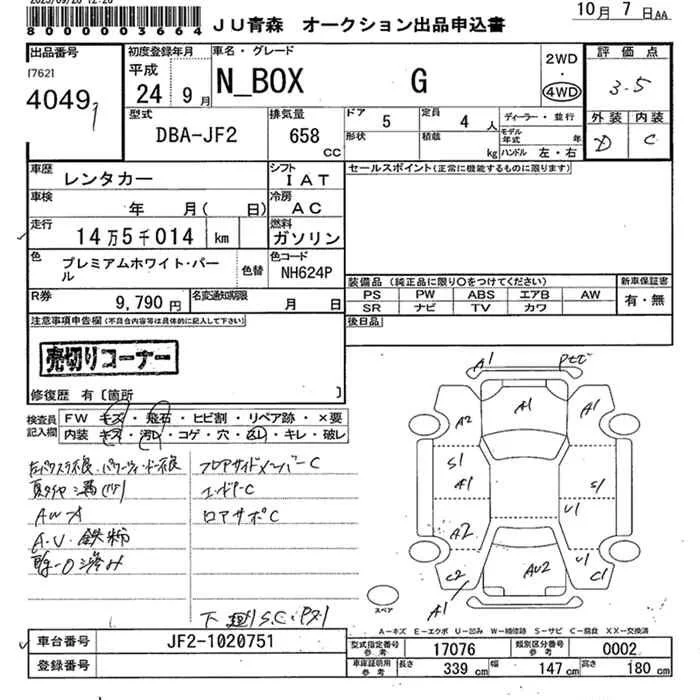 8000003664
JU青森 オークション出品申込書
10月 7日AA
出品番号
17621
4049
初度登録年月
平成
24 9月
車名・グレード
N_BOX G
2WD
・
4WD
評価点
3.5
型式
DBA-JF2
排気量
658
CC
ドア
5
定員
4 人
形状
積載
kg
ディーラー・並行
モデル年式 年
ハンドル 左・右
外装 内装
D C
車歴
レンタカー
シフト
IAT
セールスポイント(正常に機能するものに限ります)
車検
年 月( 日)
冷房
AC
走行
14万5千014 km
燃料
ガソリン
色
プレミアムホワイト・パール
色替
色コード
NH624P
R券
9,790 円
名変通知期限
月 日
装備品 (純正品に限り○をつけてください)
PS PW ABS エアB AW
SR ナビ TV カワ
新車保証書
有・無
後日品
注意事項申告欄(不具合内容等は具体的に記入して下さい)
売切りコーナー
修復歴 有〔箇所 〕
検査員記入欄
FW キズ・飛石・ヒビ割・リペア跡・×要
内装 キズ・汚レ・コゲ・穴・ムレ・キレ・破レ
フロアサイドメンバーC
エンドアーC
ロアサポC
AWキズ
A.U.鉄粉
下廻りS.C.
A1
A1
A1
A2
S1
A1
S1
A2
U1
U1
C2
AU2
C1
A1
スペア
A－キズ E－エクボ U－凹み W－補修跡 S－サビ C－腐食 XX－交換済
車台番号
JF2-1020751
登録番号
型式指定番号
参考
17076
類別区分番号
参考
0002
車庫証明用
参考
長さ
339 cm
幅
147 cm
高さ
180 cm